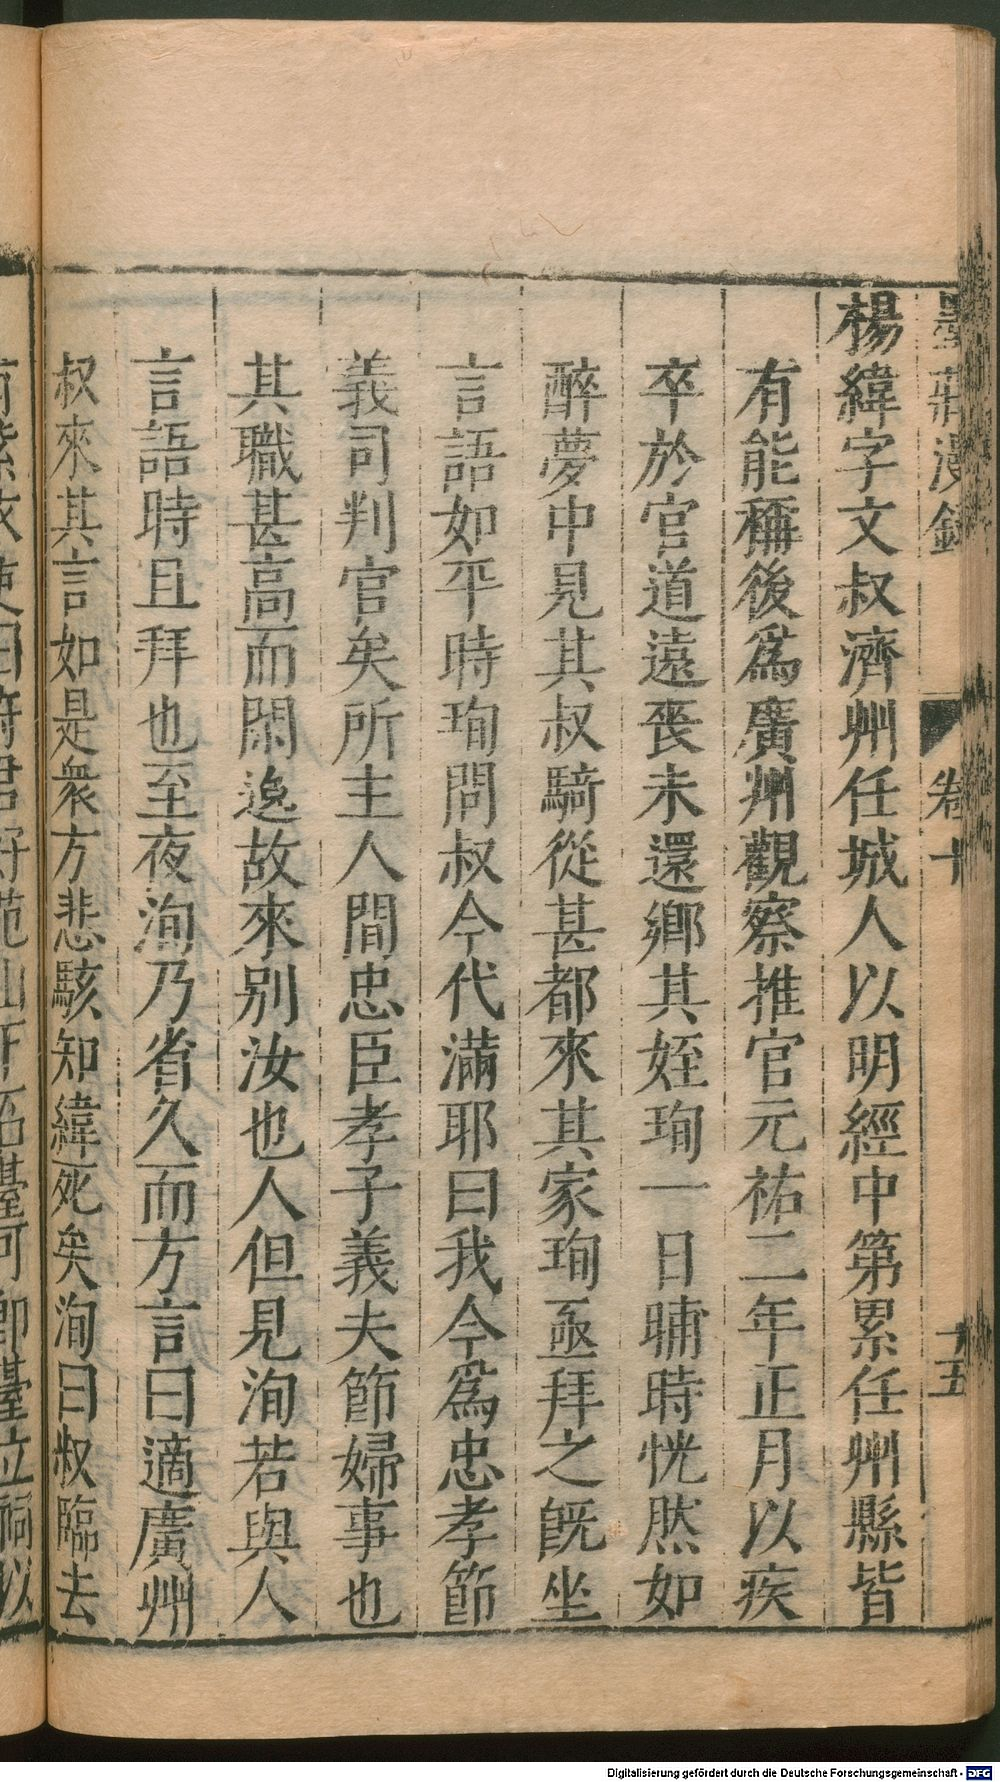 墨莊漫錄 卷十 十五
楊緯字文叔濟州任城人以明經中第累任州縣皆
有能稱後爲廣州觀察推官元祐二年正月以疾
卒於官道遠喪未還鄉其姪珣一日晡時恍然如
醉夢中見其叔騎從甚都來其家珣亟拜之旣坐
言語如平時珣問叔今代滿耶曰我今爲忠孝節
義司判官矣所主人間忠臣孝子義夫節婦事也
其職甚高而閑逸故來別汝也人但見洵若與人
言語時且拜也至夜洵乃省久而方言曰適廣州
叔來其言如是衆方悲駭知緯死矣洵曰叔臨去
君好 山下 石臺可卽臺立祠以
Digitalisierung gefördert durch die Deutsche Forschungsgemeinschaft - DFG